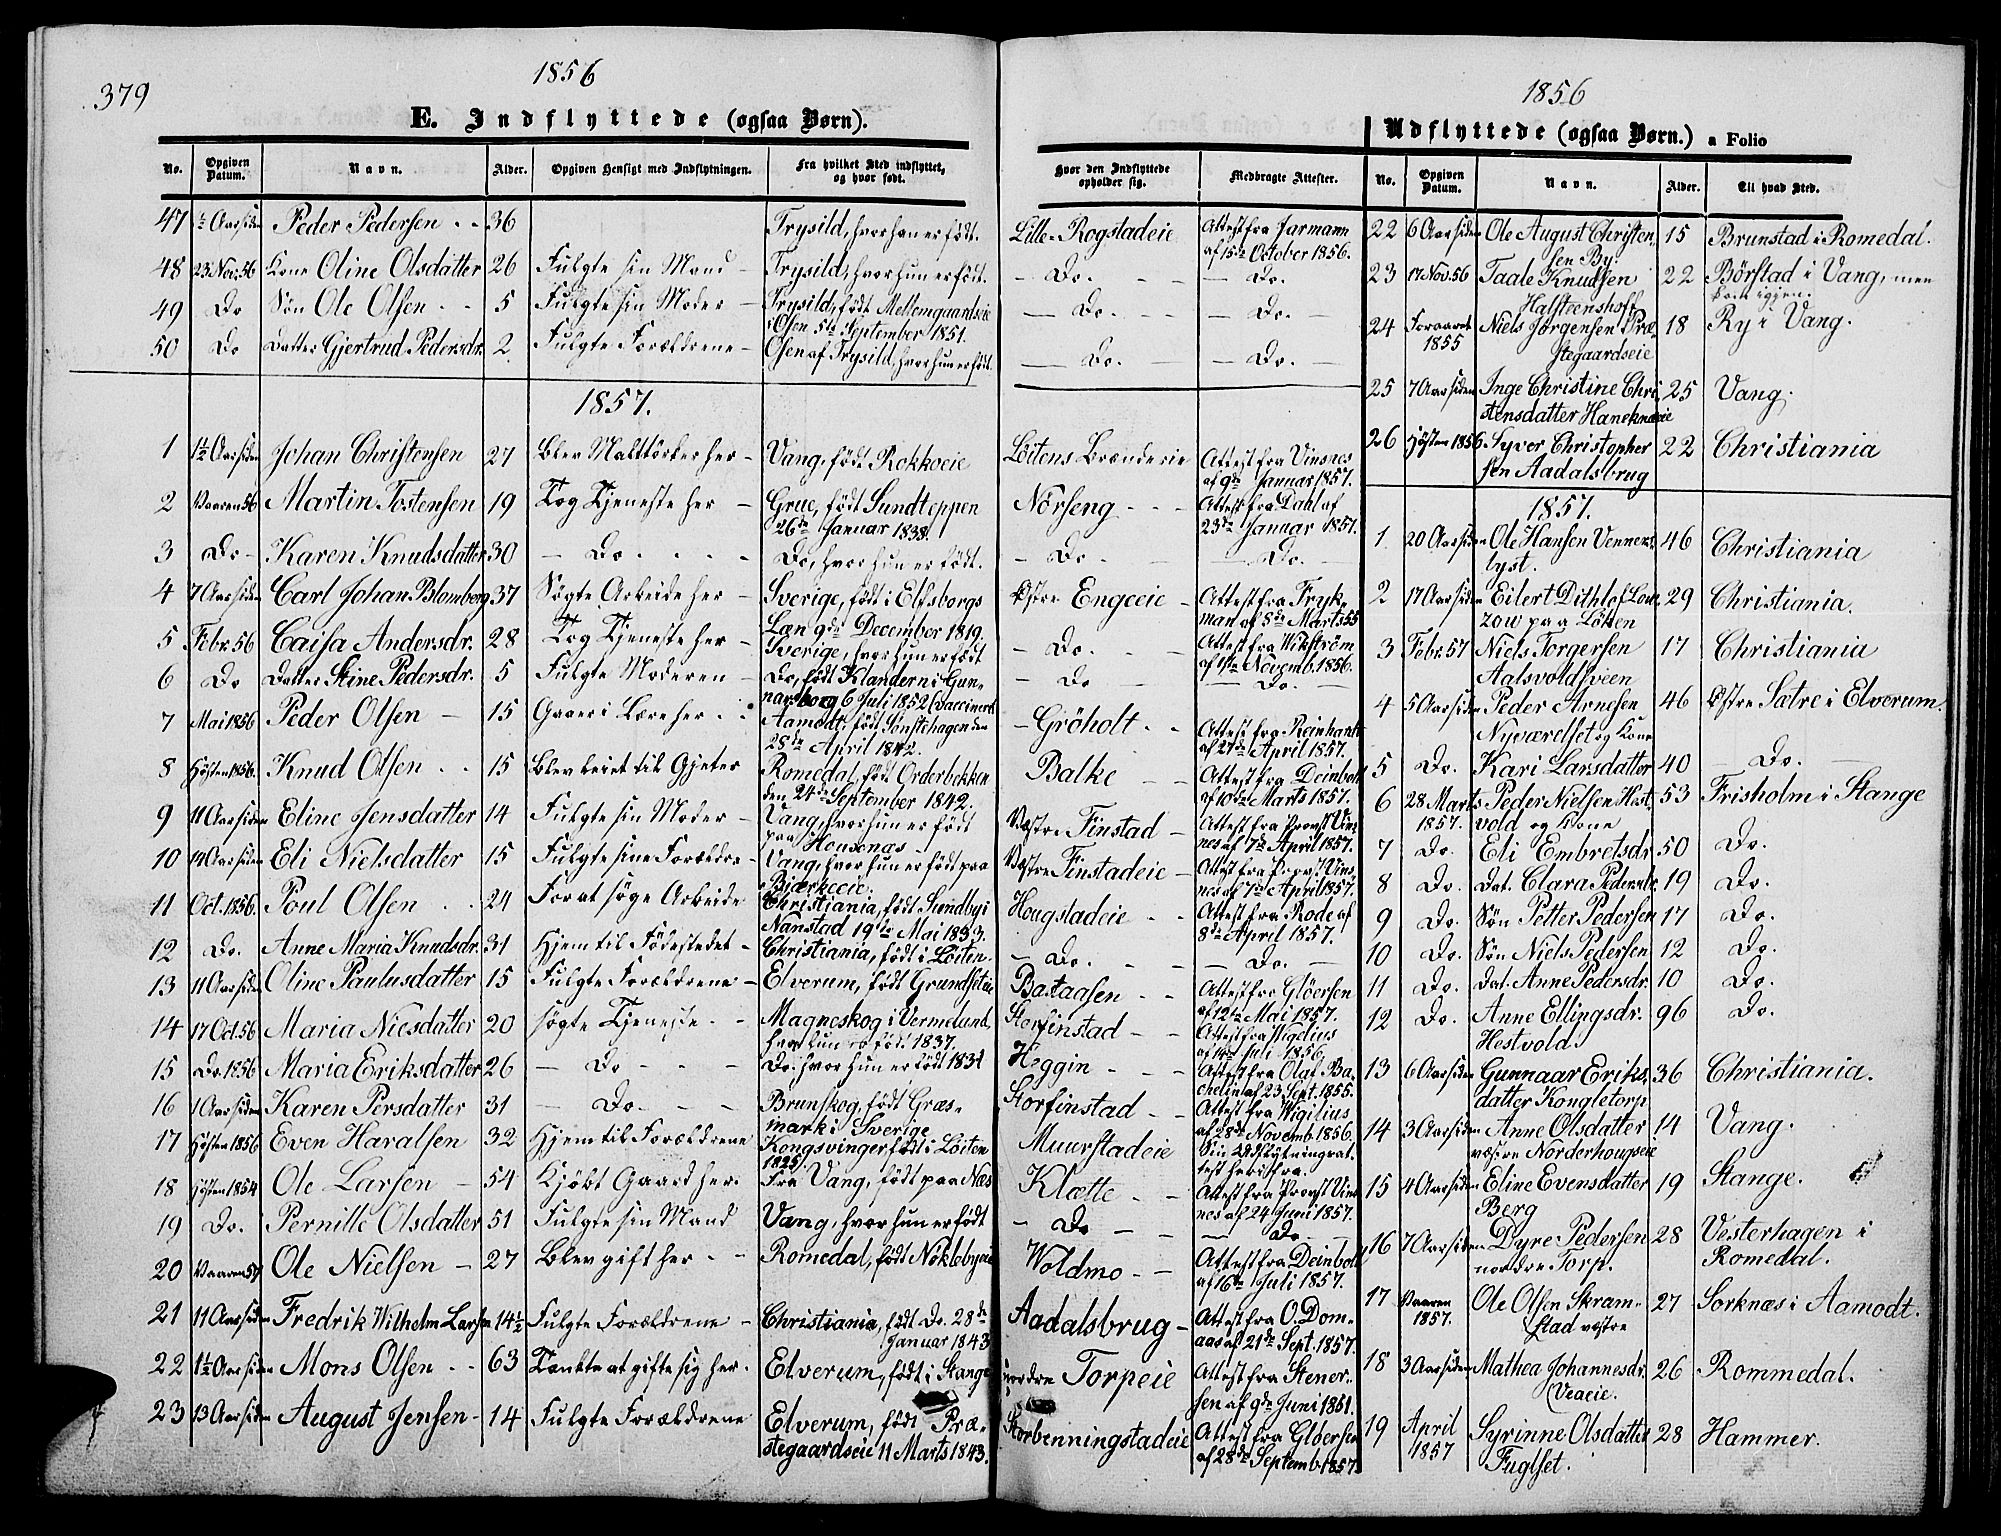 379
1856
E. Indflyttede (ogsaa Børn).
No. Opgiven Datum. Navn. Alder. Opgiven Hensigt med Indflytningen. Fra hvilket Sted indflyttet, og hvor født. Hvor den Indflyttede opholder sig. Medbragte Attester.
47 Peder Pedersen 36 Trysild, hvor han er født. Lille-Rogstadeie Attest fra Jarmann
af 15de October 1856.
48 23 Nov. 56 Kone Oline Olsdatter 26 Fulgte sin Mand Trysild, hvor hun er født. Do. Do.
49 Do Søn Ole Olsen 5 Fulgte sin Moder Trysild, født Mellemgaardseie Do. Do.
i Osen 5te September 1851.
50 Do Datter Gjertrud Pedersdr. 2 Fulgte Forældrene Osen af Trysild, hvor hun er født. Do. Do.
1857.
1 1½ Aar siden Johan Christensen 27 Blev Maltørker her Vang, født Rokkoeie Løitens Brænderie Attest fra Vinsnes
af 9de Januar 1857.
2 Vaaren 56 Martin Tostensen 19 Tog Tjeneste her Grue, født Sundteppen Nørseng Attest fra Dahl af
26de Januar 1838. 23de Januar 1857.
3 Do Karen Knudsdatter 30 Do. Do, hvor hun er født. Do Do.
4 7 Aar siden Carl Johan Blomberg 37 Søgte Arbeide her Sverige, født i Elfsborgs Østre Engeeie Attest fra Fryk-
Læn 9de December 1819. man af 8de Marts 55
5 Febr. 56 Caisa Andersdr. 28 Tog Tjeneste her Sverige, hvor hun er født Do. Attest fra Wikström
af 1ste Novemb. 1856.
6 Do Datter Stine Pedersdr. 5 Fulgte Moderen Do, født Klandern i Gun- Do Do.
narsborg 6 Juli 1852 (vaccineret
7 Mai 1856 Peder Olsen 15 Gaaer i Lære her Aamodt, født Sønstehagen den Grøholt Attest fra Reinhardt
28de April 1842. af 27de April 1857.
8 Høsten 1856. Knud Olsen 15 Blev leiet til Gjeter Romedal, født Orderbekken Balke Attest fra Deinboll
den 24de September 1842. af 10de Marts 1857.
9 11 Aar siden Eline Jensdatter 14 Fulgte sin Moder Vang, hvor hun er født Vestre Finstad Attest fra Provst Vins-
paa Housenas nes af 7de April 1857.
10 14 Aar siden Eli Nielsdatter 15 Fulgte sine Forældre Vang, hvor hun er født paa Vestre Finstadeie Attest fra Provst Vins-
Bjærkeeie. nes af 7de April 1857.
11 Oct. 1856. Poul Olsen 24 For at søge Arbeide Christiania, født Sundby i Hougstadeie Attest fra Rode af
Nanstad 19de Mai 1833. 8de April 1857.
12 Do. Anne Maria Knudsdr. 31 Hjem til Fødestedet Christiania, født i Løiten. Do. Do.
13 11 Aar siden Oline Paulusdatter 15 Fulgte Forældrene Elverum, født Grundseteie Bastaasen Attest fra Gløersen
af 12te Mai 1857.
14 17 Oct. 56 Maria Niesdatter 20 søgte Tjeneste Magneskog i Vermeland, Storfinstad Attest fra Vigelius
hvor hun er født 1837. af 14de Juli 1856.
15 Do 1856 Maria Eriksdatter 26 Do Do. hvor hun er født 1831 Heggin Attest fra Olaf Ba-
chelin af 23 Sept. 1855.
16 1 Aar siden Karen Persdatter 31 Do. Brunskog, født Græs- Storfinstad Attest fra Wigilius
mark i Sverige af 28de Novemb. 1856.
17 Høsten 1856 Even Haralsen 32 Hjem til Forældrene Kongsvinger, født i Løiten Muurstadeie Sin Udflytningsat-
1825. test herfra.
18 Høsten 1854 Ole Larsen 54 Kjøbt Gaard her. Fra Vang, født paa Næs Klætte Attest fra Provst Vins-
nes af 24 Juni 1857.
19 Do. Pernille Olsdatter 51 Fulgte sin Mand Vang, hvor hun er født Do Do
20 Vaaren 57 Ole Nielsen 27 Blev gift her Romedal, født Nøklebyeie Woldmo Attest fra Deinboll
af 16de Juli 1857.
21 11 Aar siden Fredrik Wilhelm Larsen 14½ Fulgte Forældrene Christiania, født Do. 28de Aadalsbrug Attest fra O. Dom-
Januar 1843 aas af 21de Sept. 1857.
22 1½ Aar siden Mons Olsen 63 Tænkte at gifte sig her. Elverum, født i Stange nordre Torpeie Attest fra Stener-
sen af 9de Juni 1861.
23 13 Aar siden August Jensen 14 Fulgte Forældrene Elverum, født Præ- Storbenningstadeie Attest fra Gløersen
stegaardseie 11 Marts 1843. af 28de Septemb. 1857.
1856
Udflyttede (ogsaa Børn.) a Folio
No. Opgiven Datum. Navn. Alder. Til hvad Sted.
22 6 Aar siden Ole August Christen- 15 Brunstad i Romedal.
sen By
23 17 Nov. 56 Taale Knudsen 22 Børstad i Vang, men
Halstenshoff kom iggen.
24 Foraaret Niels Jørgensen Præ- 18 Ry i Vang.
1855 stegaardseie
25 7 Aar siden Inge Christine Chri- 25 Vang.
stensdatter Haneknæeie
26 Høsten 1856 Syver Christopher- 22 Christiania
sen Aadalsbrug
1857.
1 20 Aar siden Ole Hansen Venners- 46 Christiania
lyst.
2 17 Aar siden Eilert Dithlof Low- 29 Christiania.
zow paa Løken
3 Febr. 57 Niels Torgersen 17 Christiania
Aalsvoldsveen
4 5 Aar siden Peder Arnesen 46 Østre Sætre i Elverum.
Nyværelset og Kone
5 Do. Kari Larsdatter 40 Do.
6 28 Marts Peder Nielsen Hest- 53 Frisholm i Stange
1857. vold og Kone
7 Do. Eli Embretsdr 50 Do.
8 Do. Dat. Clara Pedersdr. 19 Do.
9 Do. Søn Petter Pedersen 17 Do.
10 Do. Søn Niels Pedersen 12 Do.
11 Do. Dat. Anne Pedersdr. 10 Do.
12 Do. Anne Ellingsdr. 96 Do.
Hestvold
13 6 Aar siden Gunnaar Eriks- 36 Christiania.
datter Kongletorp
14 3 Aar siden Anne Olsdatter 14 Vang.
væstre Norderhougseie
15 4 Aar siden Eline Evensdatter 19 Stange.
Berg
16 7 Aar siden Dyre Pedersen 28 Vesterhagen i
nordre Torp. Romedal.
17 Vaaren Ole Olsen Skram- 27 Sorknæs i Aamodt.
1857. stad væstre
18 3 Aar siden Mathea Johannesdr. 26 Rommedal.
Veaeie.
19 April Syrinne Olsdatter 28 Hammer.
1857 Fuglset.